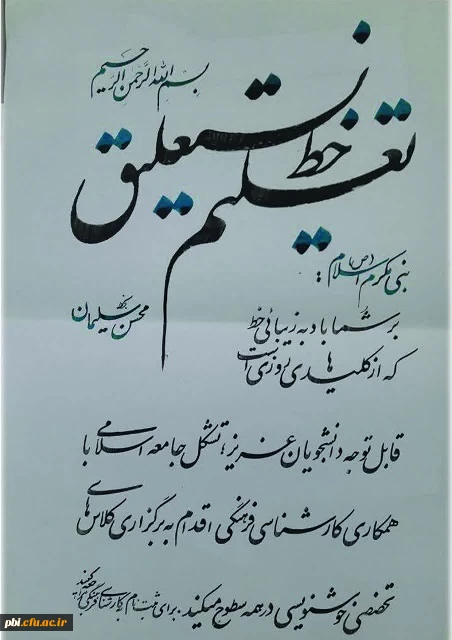 بسم الله الرحمن الرحیم
تعلیم خط نستعلیق
نبی مکرم اسلام (ص):
بر شما باد به زیبائی خط
که از کلیدهای روزی است
بخط محسن سلیمان
قابل توجه دانشجویان عزیز؛ تشکل جامعه اسلامی با
همکاری کارشناسی فرهنگی اقدام به برگزاری کلاس‌های
تخصصی خوشنویسی در همه سطوح میکند. برای ثبت نام به کارشناسی فرهنگی مراجعه کنید
pbi.cfu.ac.ir